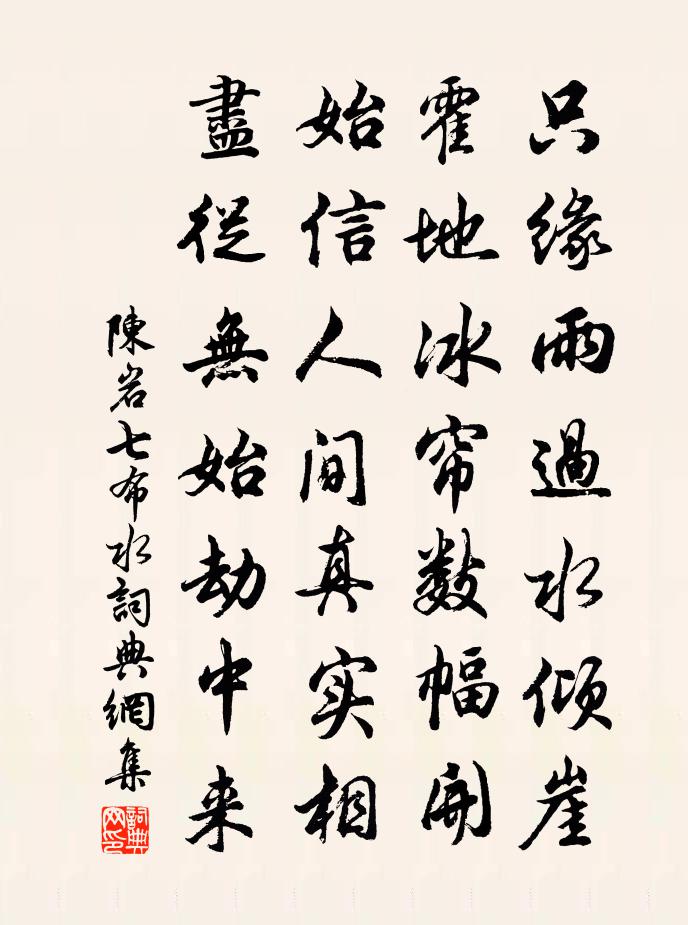 只缘雨過水倾崖
霍地冰帘数幅開
始信人间真实相
盡從無始劫中来
陳岩七布水詞典網集
詞典網印